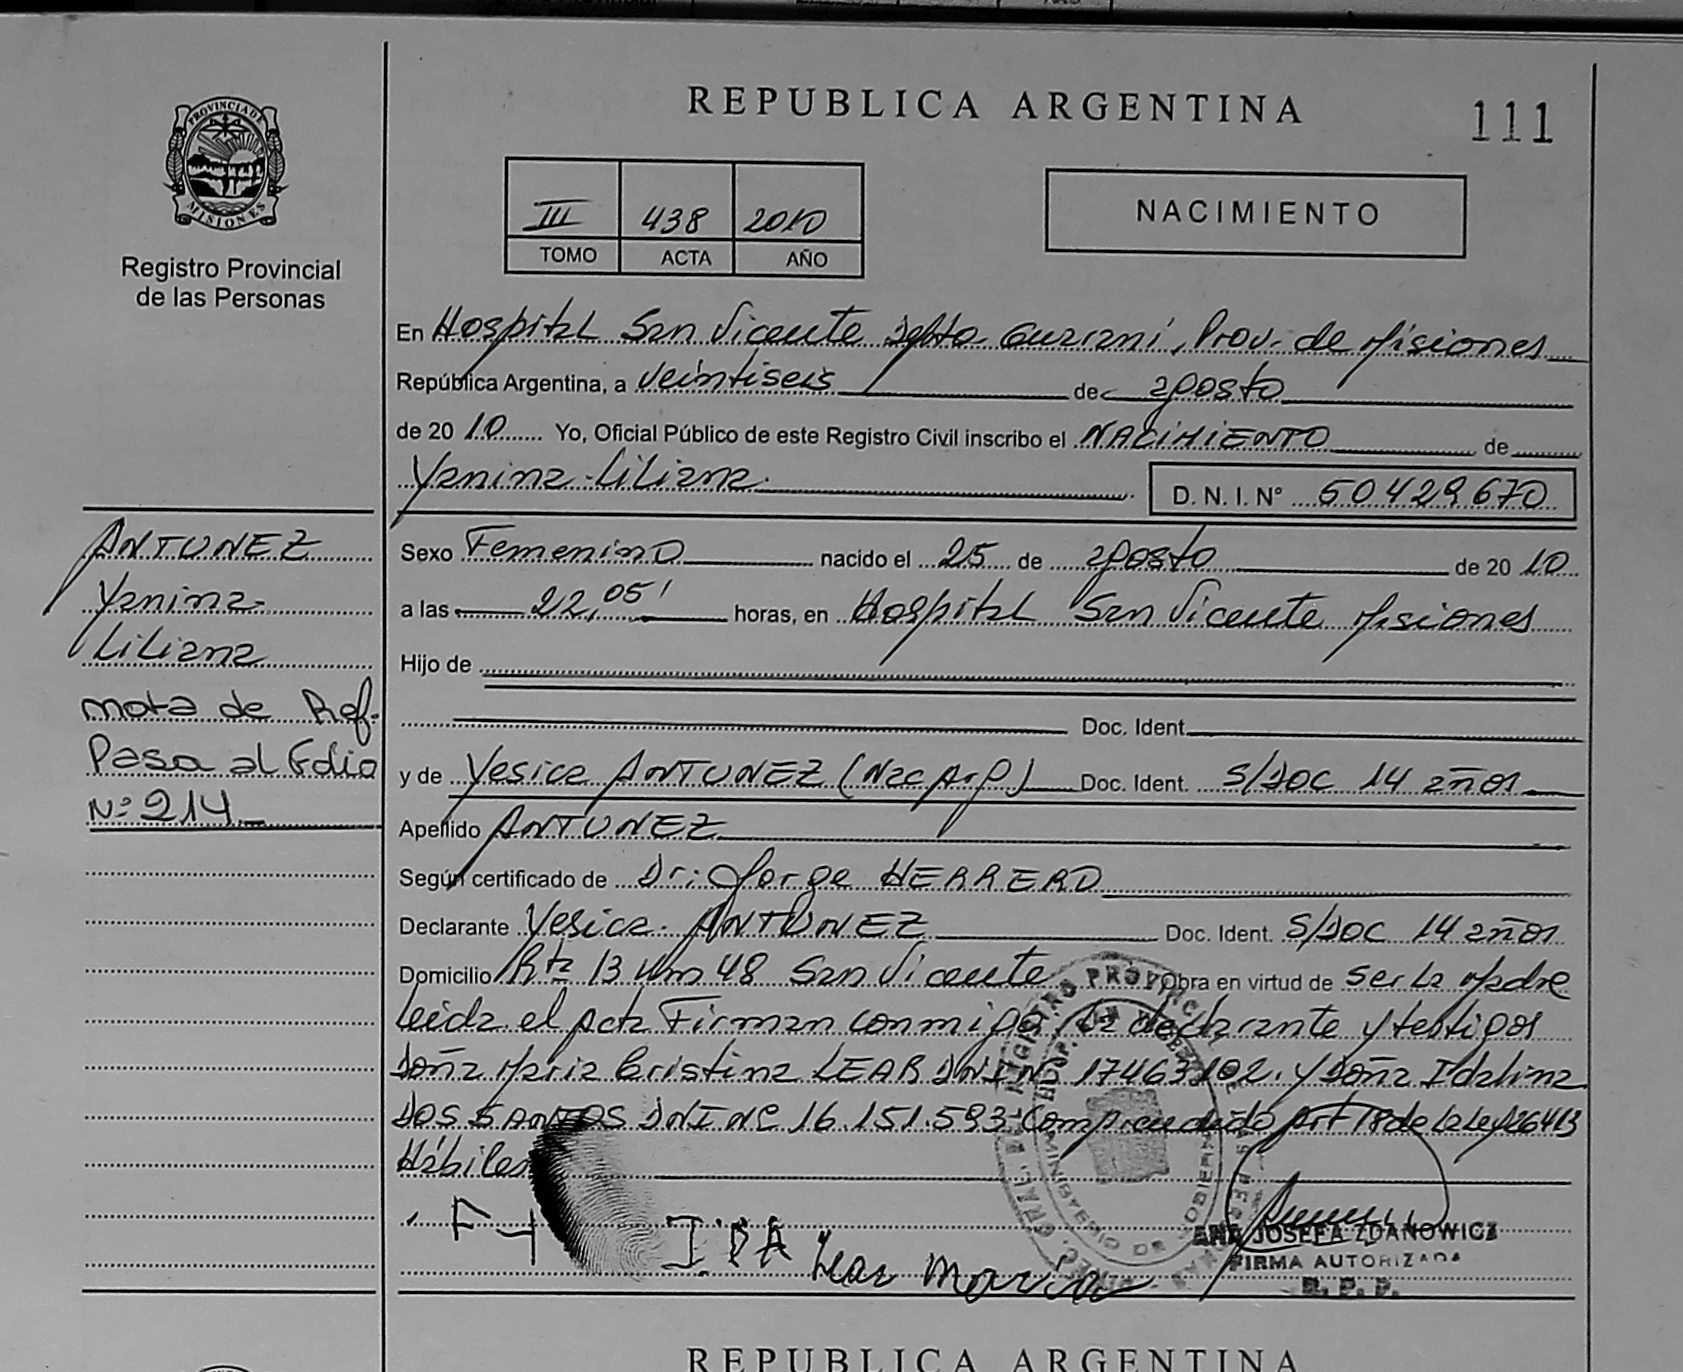 REPUBLICA ARGENTINA
111
PROVINCIA DE
MISIONES
Registro Provincial
de las Personas
III 438 2010
TOMO ACTA AÑO
NACIMIENTO
En Hospital San Vicente Depto Guarani, Prov. de Misiones
República Argentina, a veintiseis de agosto
de 20 10 Yo, Oficial Público de este Registro Civil inscribo el NACIMIENTO de
Yanina Liliana
D. N. I. N° 50.429.670
Sexo Femenino nacido el 25 de agosto de 20 10
a las 22,05' horas, en Hospital San Vicente Misiones
Hijo de
Doc. Ident.
y de Yesica ANTUNEZ (Nac Arg) Doc. Ident. S/DOC 14 años
Apellido ANTUNEZ
Según certificado de Dr: Jorge HERRERO
Declarante Yesica ANTUNEZ Doc. Ident. S/DOC 14 años
Domicilio Rta 13 Km 48 San Vicente Obra en virtud de ser la Madre
Leida el acta Firman conmigo, la declarante y testigos
Doña Maria Cristina LEAR DNI N° 17463102 y Doña Idalina
DOS SANTOS DNI N° 16.151.593 Comprendido Art 18 de la Ley 26413
Hábiles
ANTUNEZ
Yanina
Liliana
nota de Ref.
Pasa al Folio
N° 214
IDA Lear Maria
ANA JOSEFA ZDANOWICZ
FIRMA AUTORIZADA
R. P. P.
REPUBLICA ARGENTINA